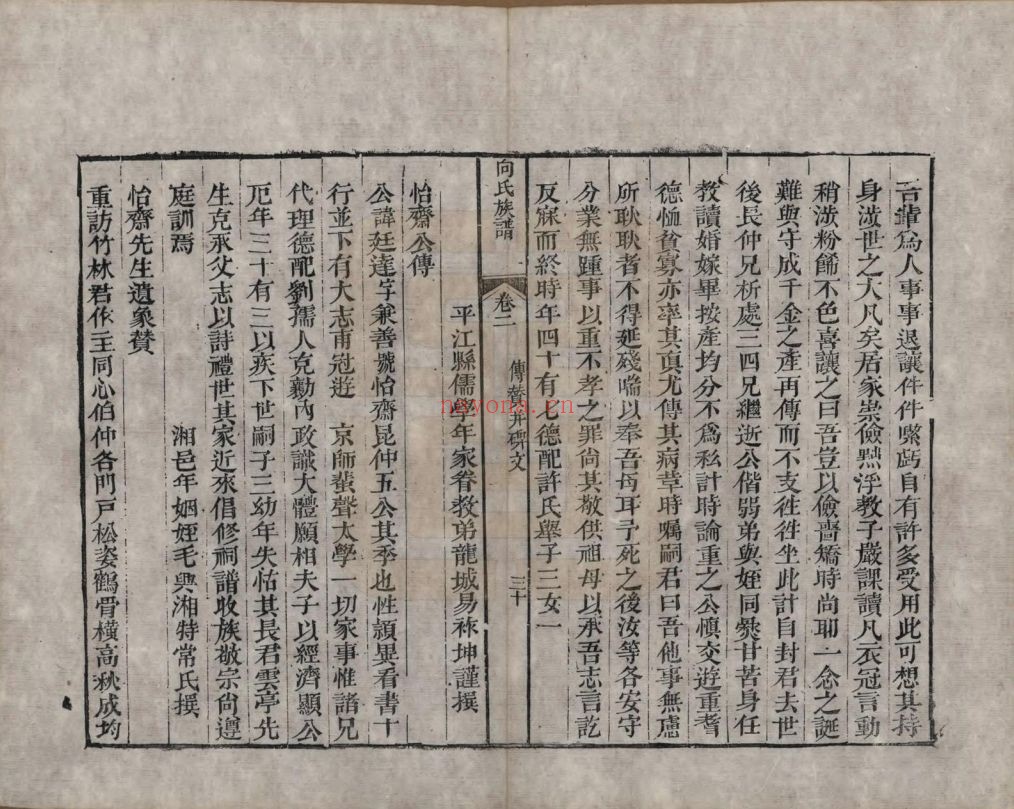 言譜爲人事事退讓件件喫虧自有許多受用此可想其持
身涉世之大凡矣居家崇儉黜浮教子嚴課讀凡衣冠言動
稍涉粉飾不色喜讓之曰吾豈以儉嗇矯時尚耶一念之誕
難與守成千金之產再傳而不支徃徃坐此計自封君去世
後長仲兄析處三四兄繼逝公偕弱弟與姪同爨甘苦身任
教讀婚嫁畢按產均分不爲私計時論重之公慎交遊重耆
德恤貧寡亦率其眞尤傳其病革時嘱嗣君曰吾他事無慮
所耿耿者不得延殘喘以奉吾母耳予死之後汝等各安守
分業無踵事以重不孝之罪尙其敬供祖母以承吾志言訖
反寐而終時年四十有七德配許氏舉子三女一
向氏族譜
卷二
傳贊并碑文
三十
平江縣儒學年家眷教弟龍城易祿坤謹撰
怡齋公傳
公諱廷達字兼善號怡齋昆仲五公其季也性頴異看書十
行並下有大志甫冠遊 京師蜚聲太學一切家事惟諸兄
代理德配劉孺人克勷內政識大體願相夫子以經濟顯公
厄年三十有三以疾下世嗣子三幼年失怙其長君雲亭先
生克承父志以詩禮世其家近來倡修祠譜收族敬宗尙遵
庭訓焉
湘邑年姻姪毛興湘特常氏撰
怡齋先生遺象贊
重訪竹林君作主同心伯仲各門戸松姿鶴骨橫高秋成均
nayona.cn